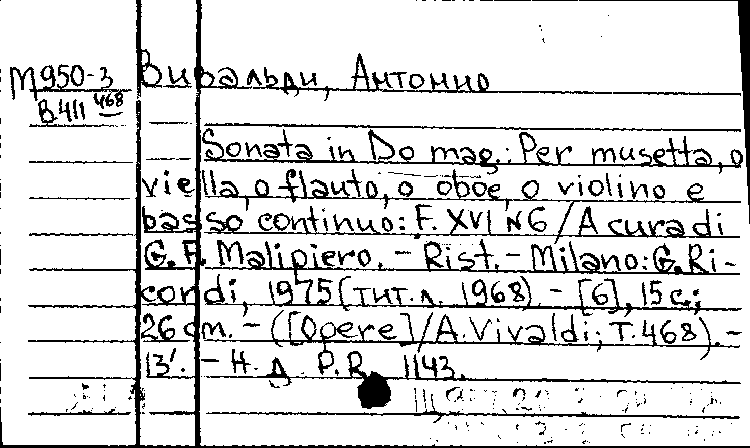 М950-3 Вивальди, Антонио
В411 468
Sonata in Do mag.: Per musetta, o
viella, o flauto, o oboe, o violino e
basso continuo: F. XVI N6 / A cura di
G. F. Malipiero. - Rist. - Milano: G. Ri-
cordi, 1975 (тит. л. 1968). - [6], 15 с.;
26 cm. - ([Opere] / A. Vivaldi; T. 468). -
13'. - Н. д. P. R. 1143.